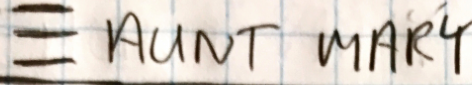 ≡ AUNT MARY